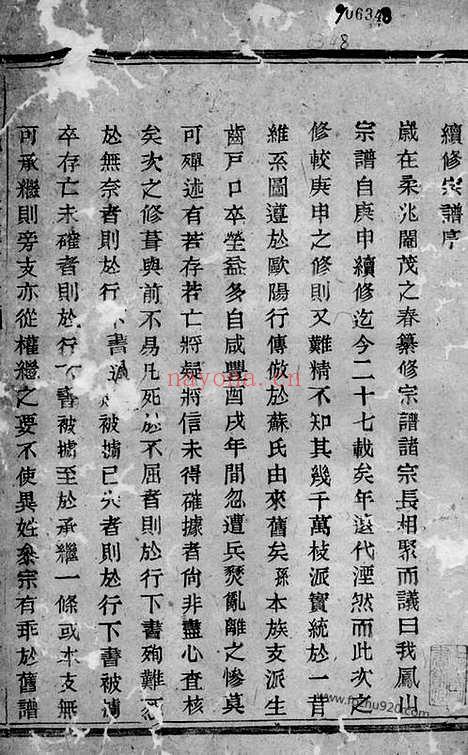 906348
48
續修宗譜序
歲在柔兆閹茂之春纂修宗譜諸宗長相聚而議曰我鳳山
宗譜自庚申續修迄今二十七載矣年遠代湮然而此次之
修較庚申之修則又難精不知其幾千萬枝派實統於一昔
維系圖遵於歐陽行傳倣於蘇氏由來舊矣孫本族支派生
齒戶口卒塋益多自咸豐酉戌年間忽遭兵燹亂離之慘莫
可殫述有若存若亡將疑將信未得確據者尙非盡心査核
矣次之修葺與前不易凡死於不屈者則於行下書殉難
於無奈者則於行下書被擄已矢者則於行下書被擄
卒存亡未確者則於行下書被擄至於承繼一條或本支無
可承繼則旁支亦從權繼之要不使異姓亂宗有乖於舊譜
nayona.cn
www.fozhu920.com